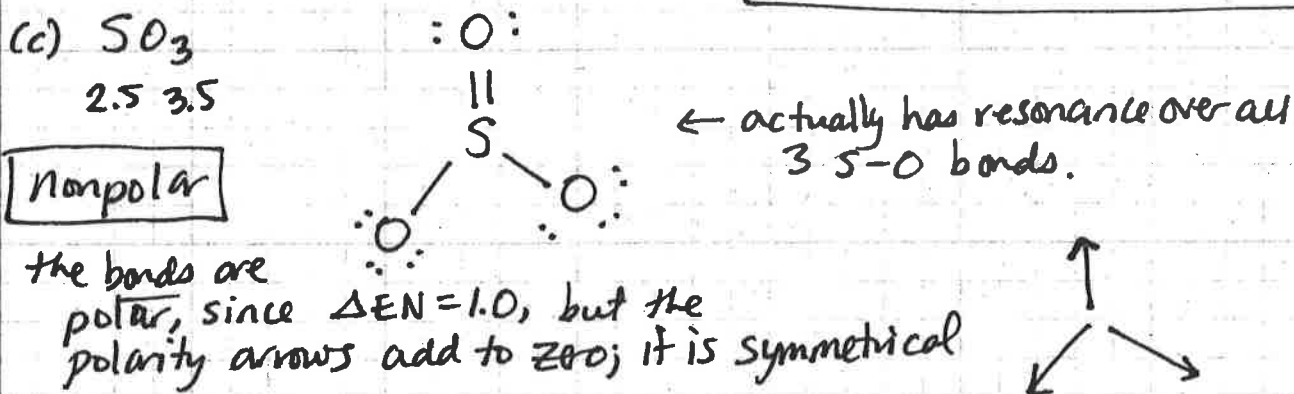 (c) SO₃
2.5 3.5
nonpolar
:O:
||
S
O
O
← actually has resonance over all
3 S-O bonds.
the bonds are
polar, since ΔEN = 1.0, but the
polarity arrows add to zero; it is symmetrical